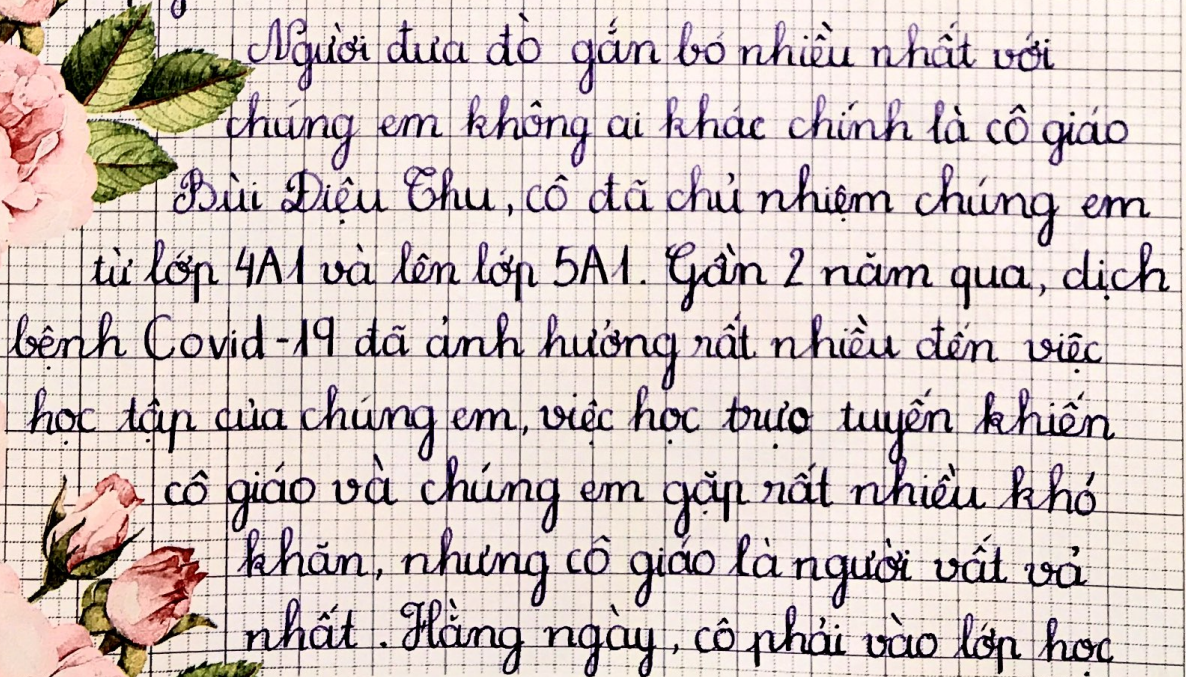 Người đưa đò gắn bó nhiều nhất với
chúng em không ai khác chính là cô giáo
Bùi Diệu Thu, cô đã chủ nhiệm chúng em
từ lớp 4A1 và lên lớp 5A1. Gần 2 năm qua, dịch
bệnh Covid-19 đã ảnh hưởng rất nhiều đến việc
học tập của chúng em, việc học trực tuyến khiến
cô giáo và chúng em gặp rất nhiều khó
khăn, nhưng cô giáo là người vất vả
nhất. Hằng ngày, cô phải vào lớp học